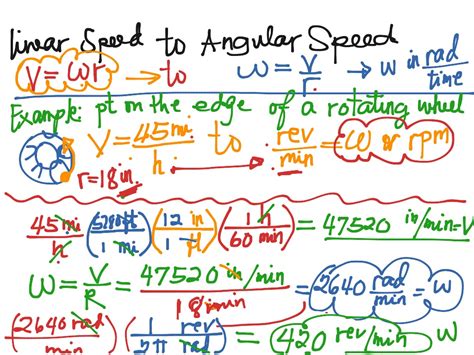 Linear Speed to Angular Speed
V = ωr → to ω = V/r → ω in rad/time
Example: pt on the edge of a rotating wheel
r=18 in. V = 45 mi/h to rev/min = ω or rpm
45 mi/h (5280 ft/1 mi) (12 in/1 ft) (1 h/60 min) = 47520 in/min = V
ω = V/R = 47520 in/min / 18 in = 2640 rad/min = ω
(2640 rad/min) (1 rev/2π rad) = 420 rev/min = ω